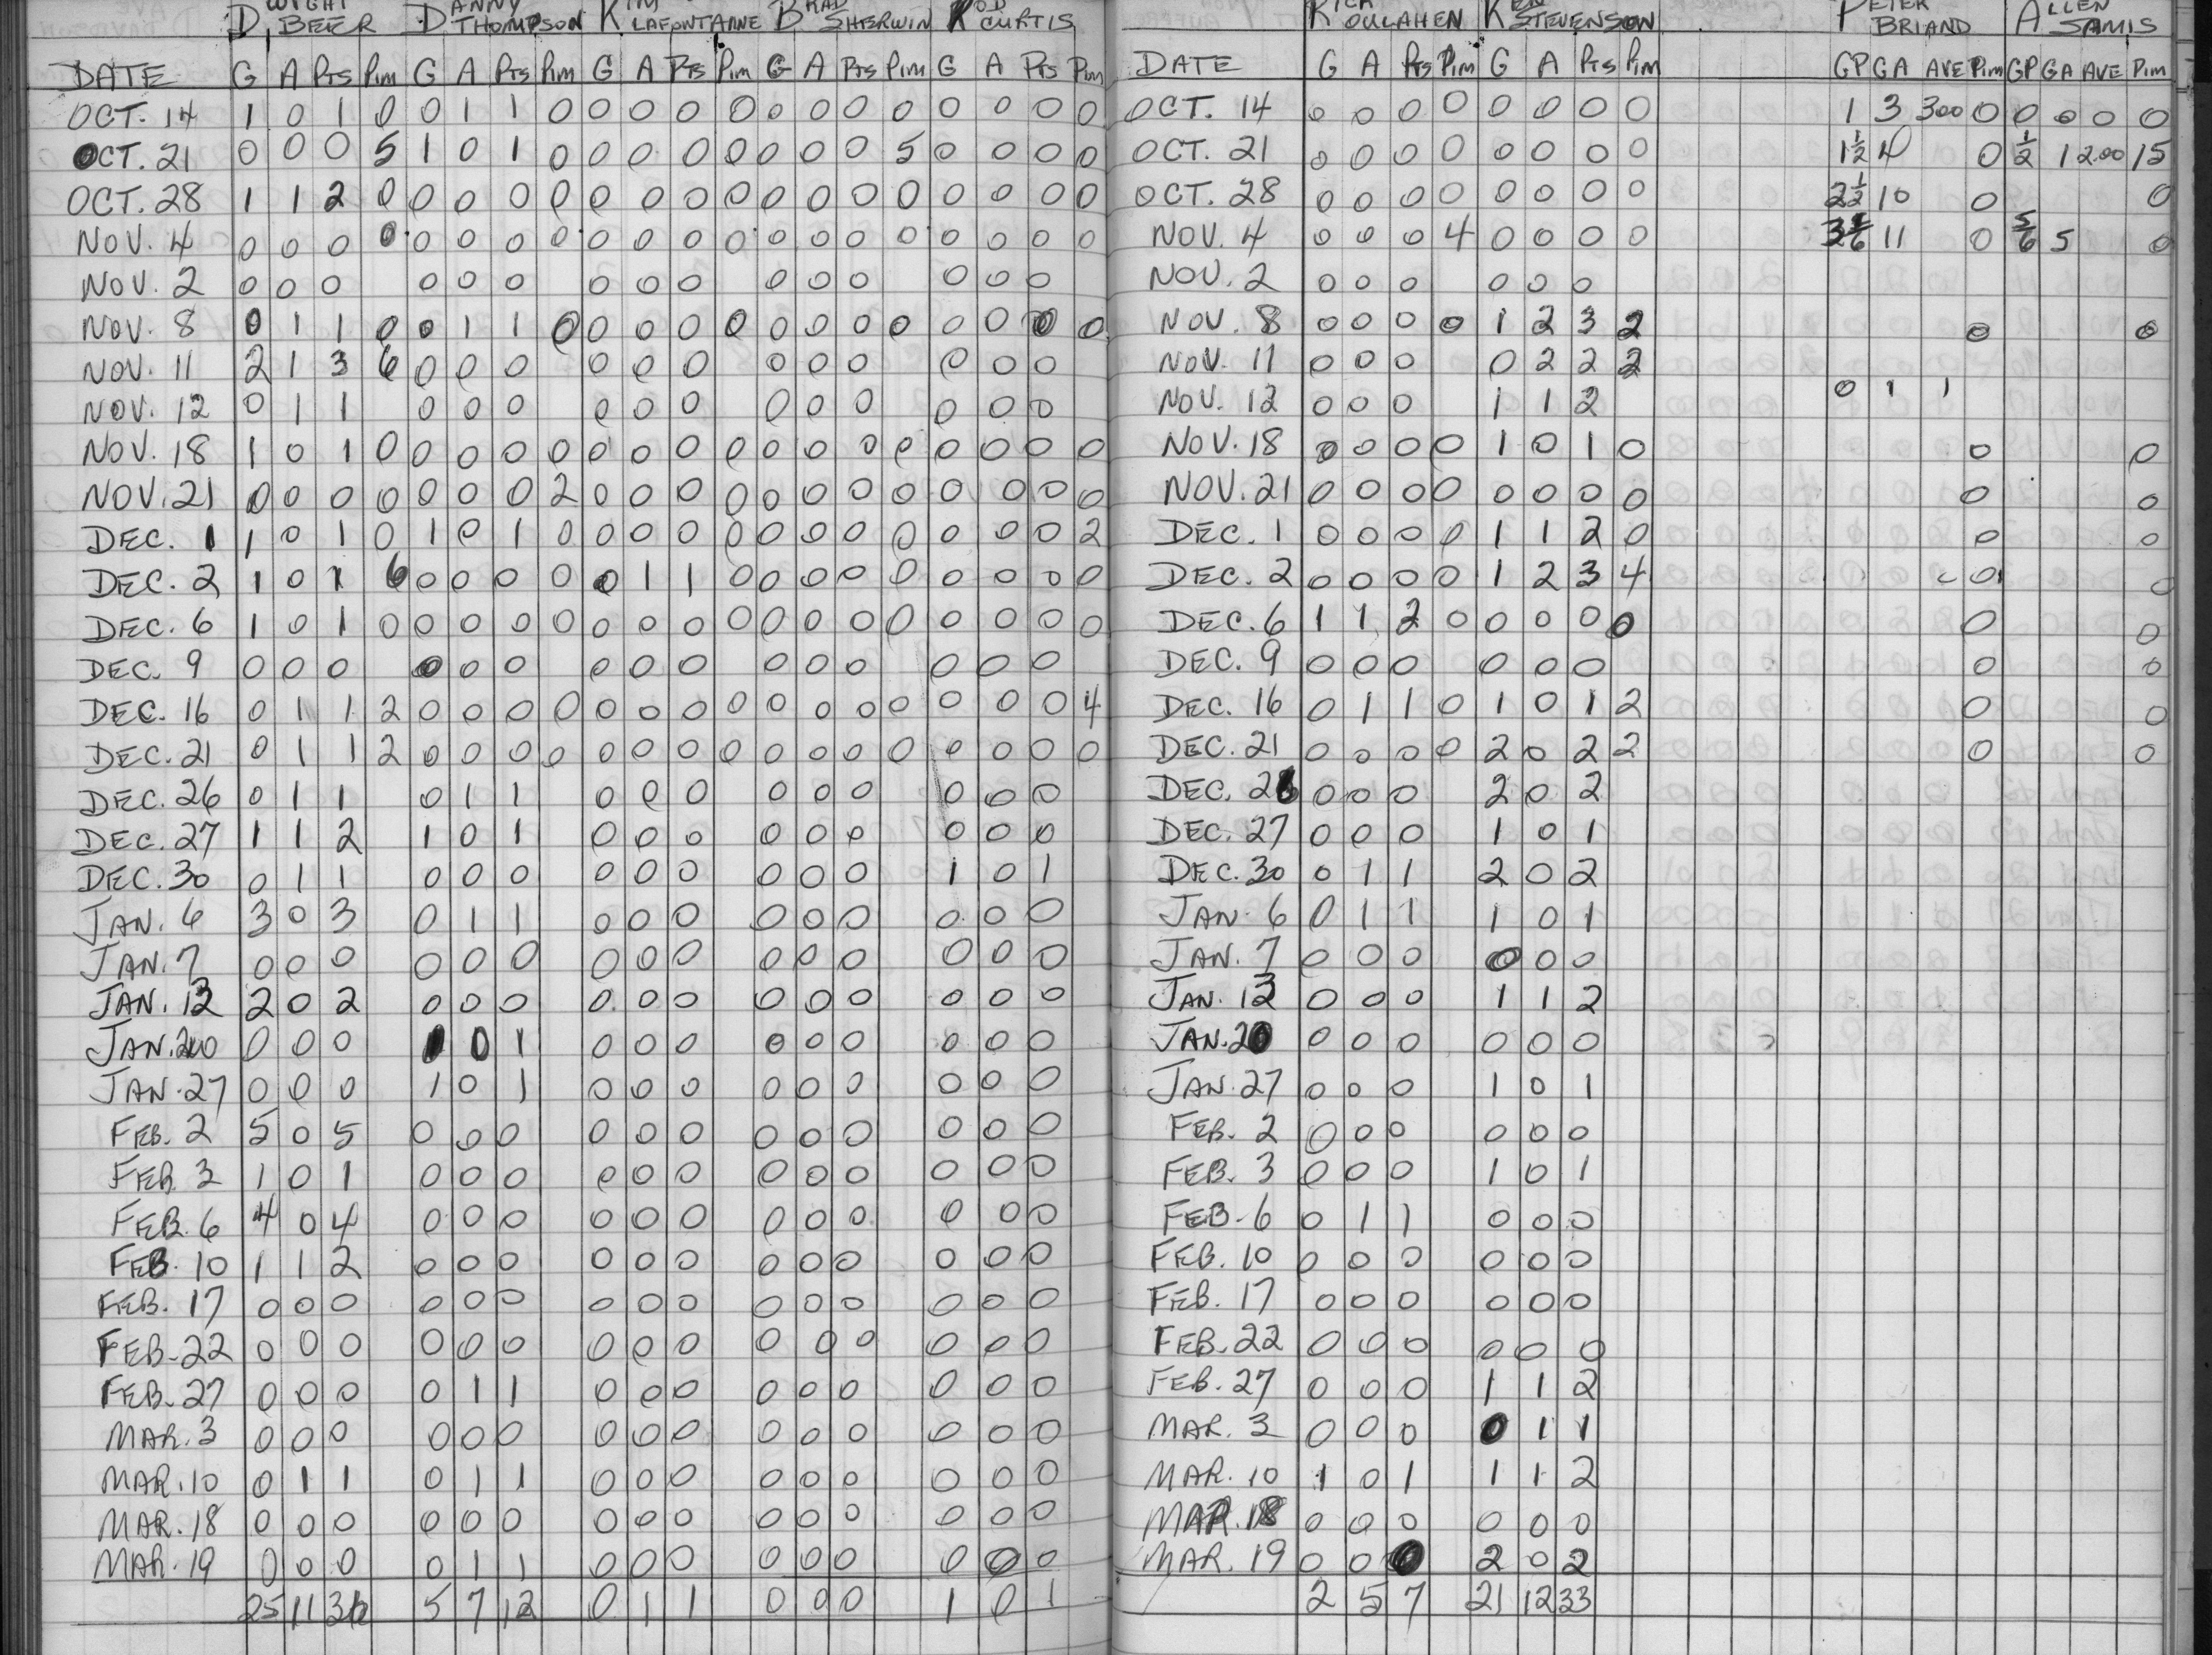 DWIGHT BEER DANNY THOMPSON KIM LAFONTAINE BRAD SHERWIN ROD CURTIS
DATE G A Pts Pim G A Pts Pim G A Pts Pim G A Pts Pim G A Pts Pim
OCT. 14 1 0 1 0 0 1 1 0 0 0 0 0 0 0 0 0 0 0 0 0
OCT. 21 0 0 0 5 1 0 1 0 0 0 0 0 0 0 0 5 0 0 0 0
OCT. 28 1 1 2 0 0 0 0 0 0 0 0 0 0 0 0 0 0 0 0 0
NOV. 4 0 0 0 0 0 0 0 0 0 0 0 0 0 0 0 0 0 0 0 0
NOV. 2 0 0 0 0 0 0 0 0 0 0 0 0 0 0 0
NOV. 8 0 1 1 0 0 1 1 0 0 0 0 0 0 0 0 0 0 0 0 0
NOV. 11 2 1 3 6 0 0 0 0 0 0 0 0 0 0 0 0
NOV. 12 0 1 1 0 0 0 0 0 0 0 0 0 0 0 0
NOV. 18 1 0 1 0 0 0 0 0 0 0 0 0 0 0 0 0 0 0 0 0
NOV. 21 0 0 0 0 0 0 0 2 0 0 0 0 0 0 0 0 0 0 0 0
DEC. 1 1 0 1 0 1 0 1 0 0 0 0 0 0 0 0 0 0 0 0 2
DEC. 2 1 0 1 6 0 0 0 0 0 1 1 0 0 0 0 0 0 0 0 0
DEC. 6 1 0 1 0 0 0 0 0 0 0 0 0 0 0 0 0 0 0 0 0
DEC. 9 0 0 0 0 0 0 0 0 0 0 0 0 0 0 0
DEC. 16 0 1 1 2 0 0 0 0 0 0 0 0 0 0 0 0 0 0 0 4
DEC. 21 0 1 1 2 0 0 0 0 0 0 0 0 0 0 0 0 0 0 0 0
DEC. 26 0 1 1 0 1 1 0 0 0 0 0 0 0 0 0
DEC. 27 1 1 2 1 0 1 0 0 0 0 0 0 0 0 0
DEC. 30 0 1 1 0 0 0 0 0 0 0 0 0 1 0 1
JAN. 6 3 0 3 0 1 1 0 0 0 0 0 0 0 0 0
JAN. 7 0 0 0 0 0 0 0 0 0 0 0 0 0 0 0
JAN. 13 2 0 2 0 0 0 0 0 0 0 0 0 0 0 0
JAN. 20 0 0 0 1 0 1 0 0 0 0 0 0 0 0 0
JAN. 27 0 0 0 1 0 1 0 0 0 0 0 0 0 0 0
FEB. 2 5 0 5 0 0 0 0 0 0 0 0 0 0 0 0
FEB. 3 1 0 1 0 0 0 0 0 0 0 0 0 0 0 0
FEB. 6 4 0 4 0 0 0 0 0 0 0 0 0 0 0 0
FEB. 10 1 1 2 0 0 0 0 0 0 0 0 0 0 0 0
FEB. 17 0 0 0 0 0 0 0 0 0 0 0 0 0 0 0
FEB. 22 0 0 0 0 0 0 0 0 0 0 0 0 0 0 0
FEB. 27 0 0 0 0 1 1 0 0 0 0 0 0 0 0 0
MAR. 3 0 0 0 0 0 0 0 0 0 0 0 0 0 0 0
MAR. 10 0 1 1 0 1 1 0 0 0 0 0 0 0 0 0
MAR. 18 0 0 0 0 0 0 0 0 0 0 0 0 0 0 0
MAR. 19 0 0 0 0 1 1 0 0 0 0 0 0 0 0 0
25 11 36 5 7 12 0 1 1 0 0 0 1 0 1
RICK OULAHEN KEN STEVENSON PETER BRIAND ALLEN SAMIS
DATE G A Pts Pim G A Pts Pim GP GA AVE Pim GP GA AVE Pim
OCT. 14 0 0 0 0 0 0 0 0 1 3 3.00 0 0 0 0 0
OCT. 21 0 0 0 0 0 0 0 0 1½ 4 0 ½ 1 2.00 15
OCT. 28 0 0 0 0 0 0 0 0 2½ 10 0 0
NOV. 4 0 0 0 4 0 0 0 0 11 0 5/6 5 0
NOV. 2 0 0 0 0 0 0
NOV. 8 0 0 0 0 1 2 3 2 0 0
NOV. 11 0 0 0 0 2 2 2
NOV. 12 0 0 0 1 1 2 0 1 1
NOV. 18 0 0 0 0 1 0 1 0 0 0
NOV. 21 0 0 0 0 0 0 0 0 0 0
DEC. 1 0 0 0 0 1 1 2 0 0 0
DEC. 2 0 0 0 0 1 2 3 4 0 0
DEC. 6 1 1 2 0 0 0 0 0 0 0
DEC. 9 0 0 0 0 0 0 0 0
DEC. 16 0 1 1 0 1 0 1 2 0 0
DEC. 21 0 0 0 0 2 0 2 2 0 0
DEC. 26 0 0 0 2 0 2
DEC. 27 0 0 0 1 0 1
DEC. 30 0 1 1 2 0 2
JAN. 6 0 1 1 1 0 1
JAN. 7 0 0 0 0 0 0
JAN. 13 0 0 0 1 1 2
JAN. 20 0 0 0 0 0 0
JAN. 27 0 0 0 1 0 1
FEB. 2 0 0 0 0 0 0
FEB. 3 0 0 0 1 0 1
FEB. 6 0 1 1 0 0 0
FEB. 10 0 0 0 0 0 0
FEB. 17 0 0 0 0 0 0
FEB. 22 0 0 0 0 0 0
FEB. 27 0 0 0 1 1 2
MAR. 3 0 0 0 0 1 1
MAR. 10 1 0 1 1 1 2
MAR. 18 0 0 0 0 0 0
MAR. 19 0 0 0 2 0 2
2 5 7 21 12 33